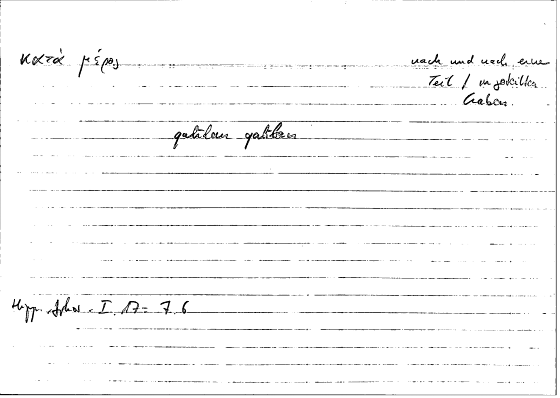 κατὰ μέρος
nach und nach eine
Teil / in geteilten
Gaben.
qalīlan qalīlan
Hipp. Aphor. I 17 = 7, 6